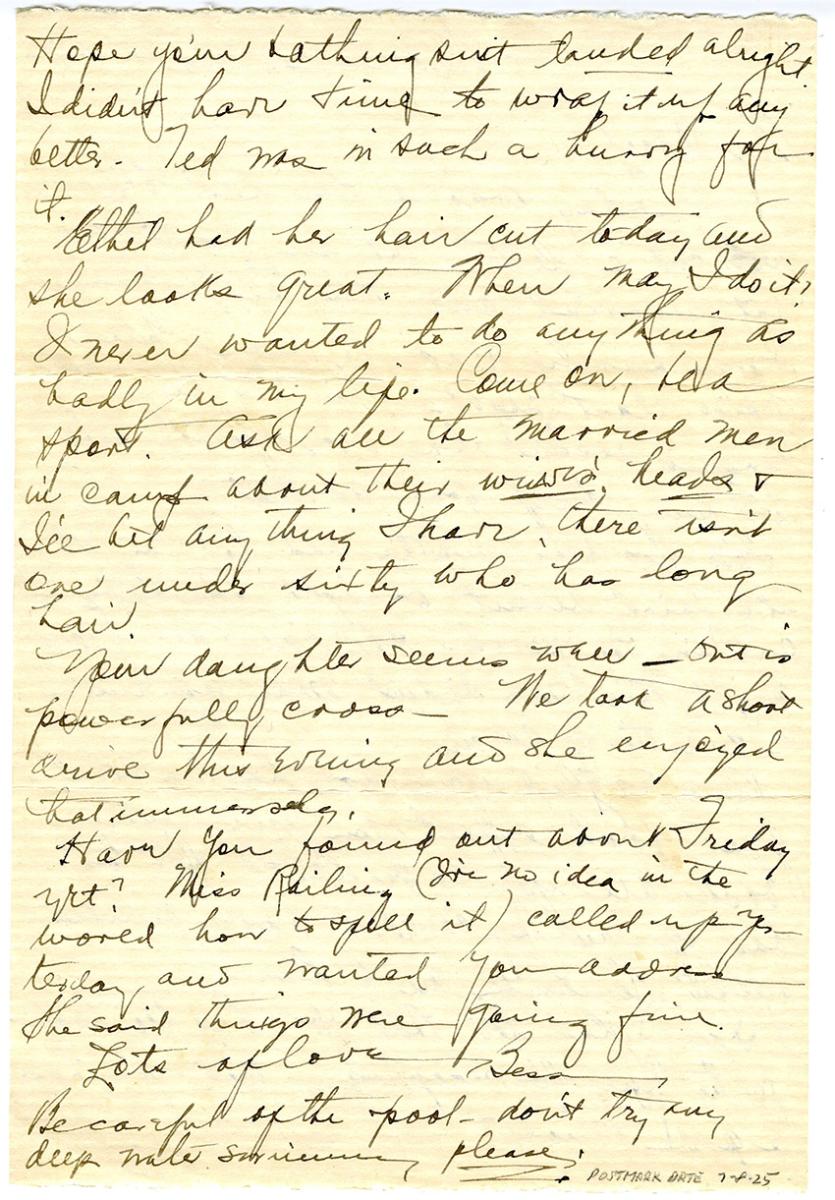 Hope your bathing suit landed alright
I didn't have time to wrap it up any
better - Ted was in such a hurry for
it.
Ethel had her hair cut today and
she looks great. When may I do it?
I never wanted to do anything as
badly in my life. Come on, be a
sport. Ask all the married men
in camp about their wives' heads &
I'll bet anything I have there isn't
one under sixty who has long
hair.
Your daughter seems well - but is
powerfully cross - We took a short
drive this evening and she enjoyed
that immensely.
Have you found out about Friday
yet? Miss Railing (I've no idea in the
world how to spell it) called up yes-
terday and wanted your address
She said things were going fine.
Lots of love Bess
Be careful of the pool - don't try any
deep water swimming please.
POSTMARK DATE 7-8-25